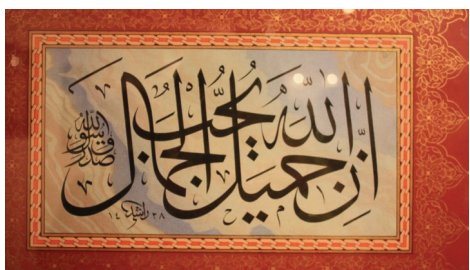 إِنَّ اللهَ جَمِيلٌ يُحِبُّ الجَمَالَ
صدق رسول الله
١٤٢٨